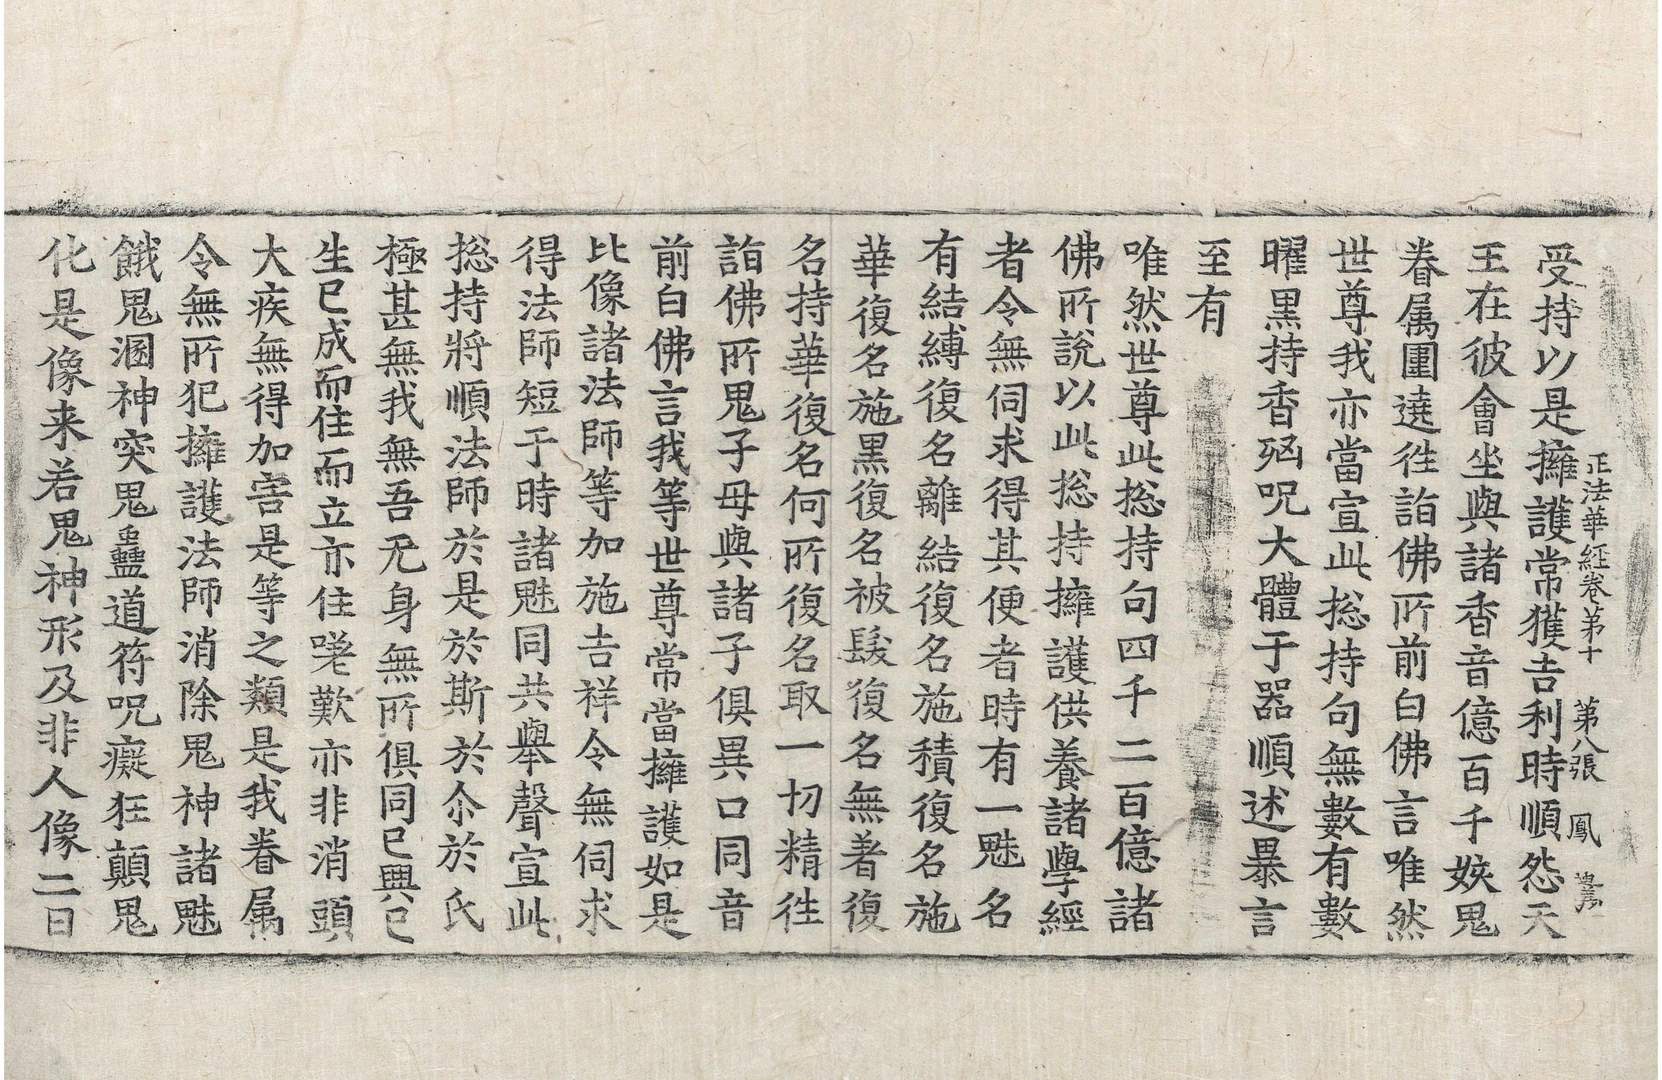 正法華經卷第十　第八張　鳳
受持以是擁護常獲吉利時順怨天
王在彼會坐與諸香音億百千姟鬼
眷属圍遶往詣佛所前白佛言唯然
世尊我亦當宣此捴持句無數有數
曜黑持香㐫呪大體于器順述暴言
至有
唯然世尊此捴持句四千二百億諸
佛所說以此捴持擁護供養諸學經
者令無伺求得其便者時有一魅名
有結縛復名離結復名施積復名施
華復名施黑復名被髮復名無著復
名持華復名何所復名取一切精往
詣佛所鬼子母與諸子俱異口同音
前白佛言我等世尊常當擁護如是
比像諸法師等加施吉祥令無伺求
得法師短于時諸魅同共舉聲宣此
捴持將順法師於是於斯於尒於氏
極甚無我無吾无身無所俱同已興已
生已成而住而立亦住嗟歎亦非消頭
大疾無得加害是等之類是我眷属
令無所犯擁護法師消除鬼神諸魅
餓鬼溷神突鬼蠱道符呪癡狂顛鬼
化是像来若鬼神形及非人像二日